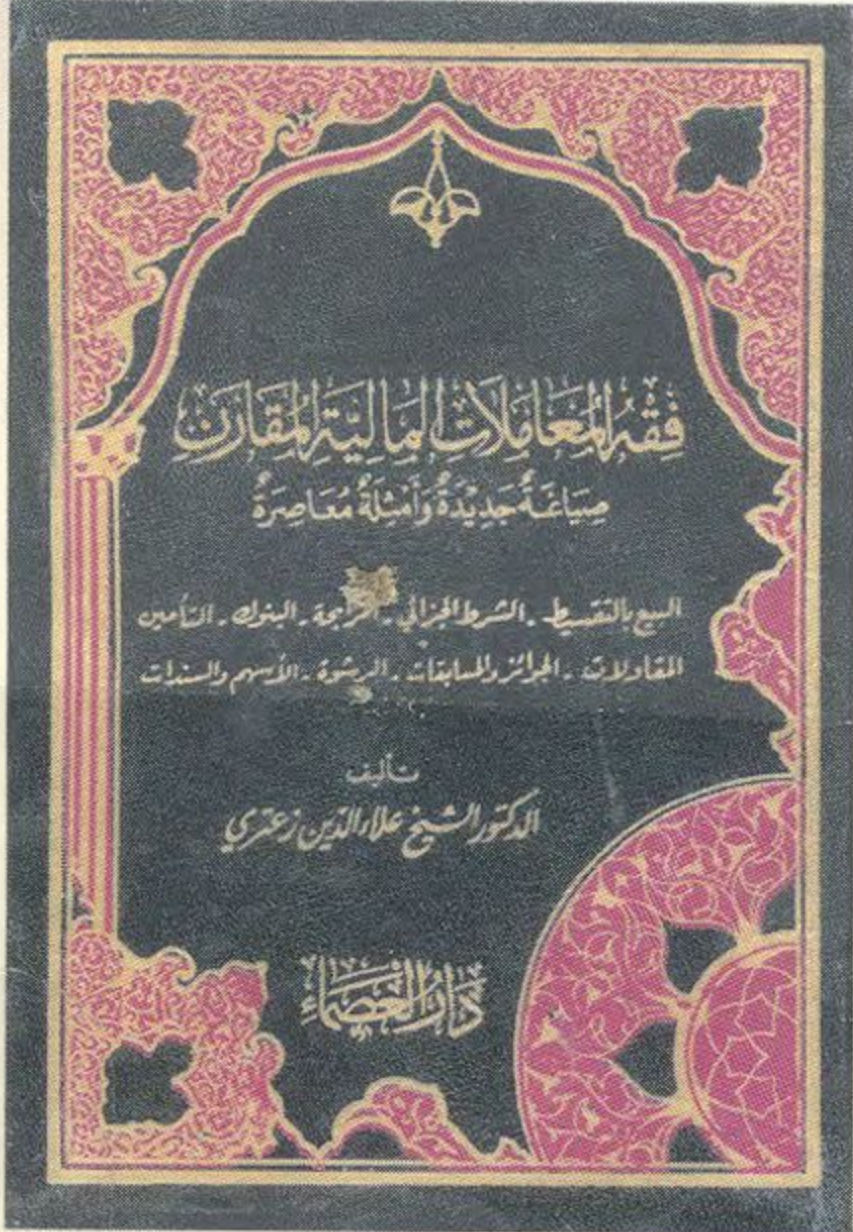 فِقْهُ المُعَامَلَاتِ المَالِيَّةِ المُقَارَن
صِيَاغَةٌ جَدِيْدَةٌ وَأَمْثِلَةٌ مُعَاصِرَةٌ
البيع بالتقسيط - الشرط الجزائي - المرابحة - البنوك - التأمين
المقاولات - الجوائز والمسابقات - الرشوة - الأسهم والسندات
تأليف
الدكتور الشيخ علاء الدين زعتري
دَارُ العَصْمَاءِ